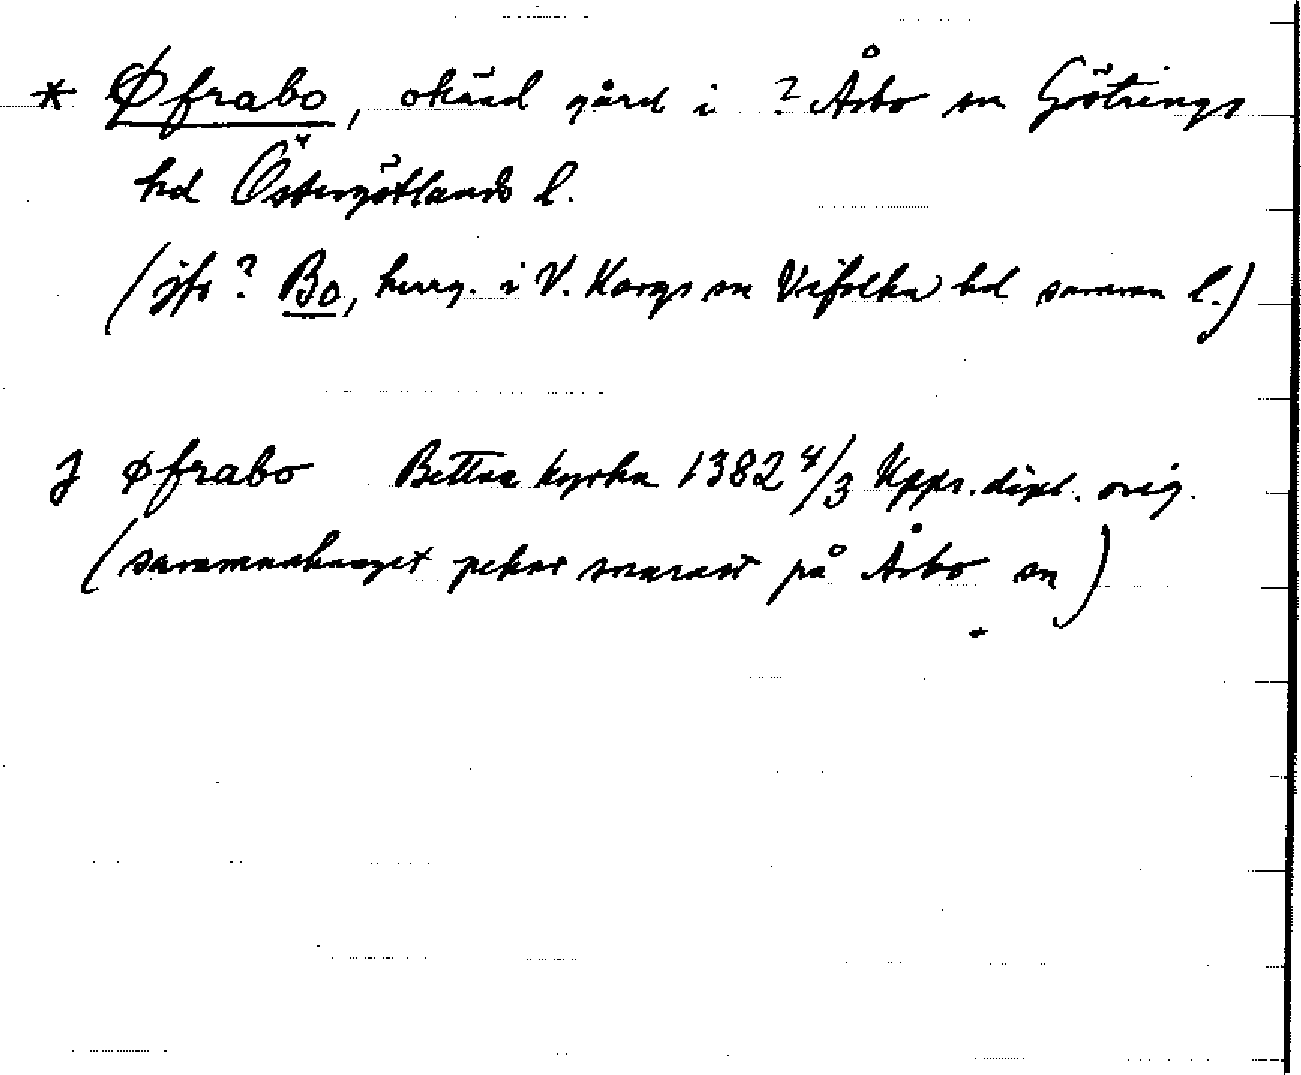 * Øfrabo, okänd gård i ? Åsbo sn Göstrings
hd Östergötlands l.
(jfr ? Bo, herrg. i V. Hargs sn Vifolka hd samma l.)
J øfrabo Bettna kyrka 1382 4/3 Upps. dipl. orig.
(sammanhanget pekar snarast på Åsbo sn)